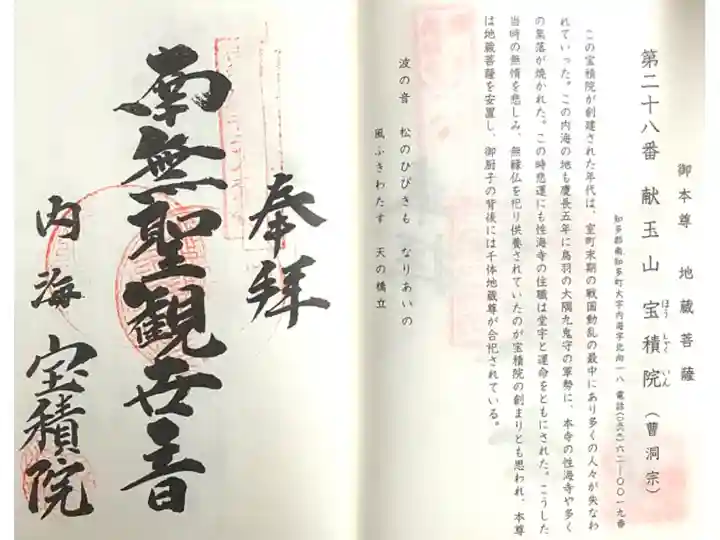 御本尊 地蔵菩薩
第二十八番 献玉山 宝積院(曹洞宗)
ほう しゃく いん
知多郡南知多町大字内海字北向一八 電話(〇五六九)六二―〇〇一九番
この宝積院が創建された年代は、室町末期の戦国動乱の最中にあり多くの人々が失なわ
れていった。この内海の地も慶長五年に鳥羽の大隅九鬼守の軍勢に、本寺の性海寺や多く
の集落が焼かれた。この時悲運にも性海寺の住職は堂宇と運命をともにされた。こうした
当時の無情を悲しみ、無縁仏を祀り供養されていたのが宝積院の創まりとも思われ、本尊
は地蔵菩薩を安置し、御厨子の背後には千体地蔵尊が合祀されている。
波の音 松のひびきも なりあいの
風ふきわたす 天の橋立
奉拝
南無聖観世音
内海 宝積院